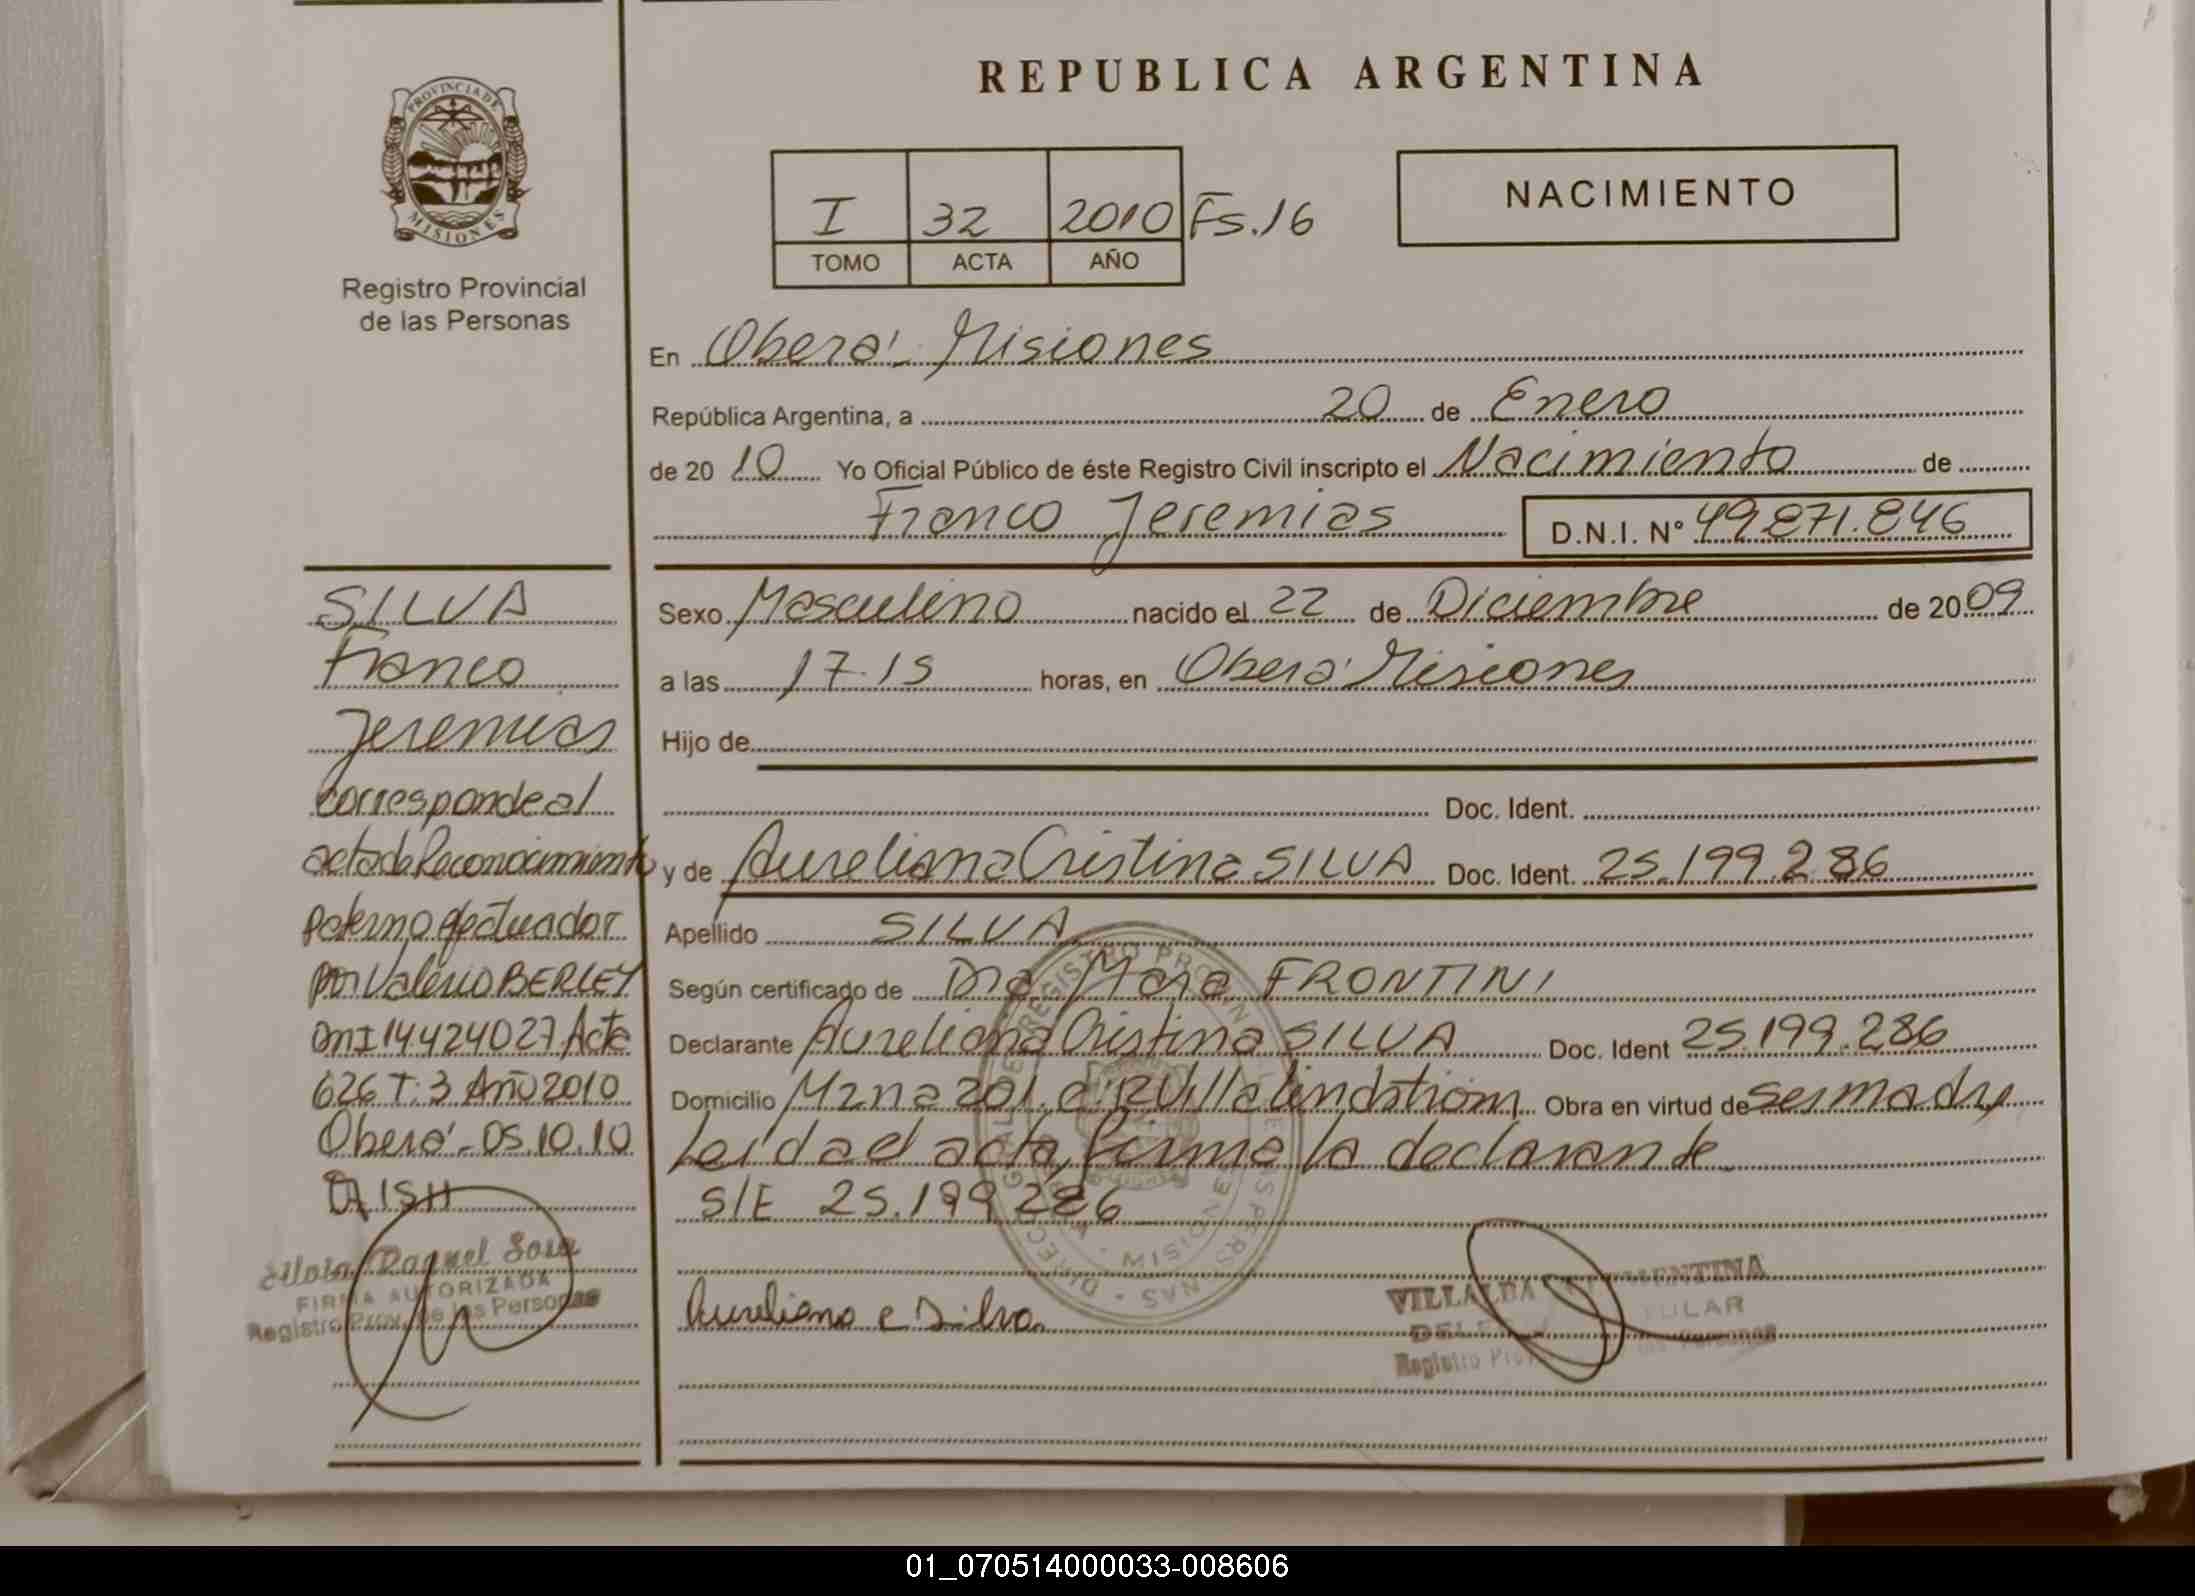 REPUBLICA ARGENTINA
PROVINCIA DE
MISIONES
Registro Provincial
de las Personas
I 32 2010 Fs.16
TOMO ACTA AÑO
NACIMIENTO
En Oberá - Misiones
República Argentina, a 20 de Enero
de 2010 Yo Oficial Público de éste Registro Civil inscripto el Nacimiento de
Franco Jeremias D.N.I. Nº 49.871.846
Sexo Masculino nacido el 22 de Diciembre de 2009
a las 17.15 horas, en Oberá Misiones
Hijo de
Doc. Ident.
y de Aureliana Cristina SILVA Doc. Ident. 25.199.286
Apellido SILVA
Según certificado de Dra. Mara FRONTINI
Declarante Aureliana Cristina SILVA Doc. Ident 25.199.286
Domicilio Mzna 201. C: 12 Villa lindstrom Obra en virtud de ser madre
Leída el acta, firma la declarante
S/E 25.199.286
Aureliana C Silva.
VILLALBA
Registro
SILVA
Franco
Jeremias
corresponde al
acta de Reconocimiento
paterno efectuador
por Valerio BERLEY
DNI 14424027 Acta
626 T: 3 Año 2010
Oberá - 05.10.10
Silvia Raquel Sosa
FIRMA AUTORIZADA
Registro Prov. de las Personas
01_070514000033-008606